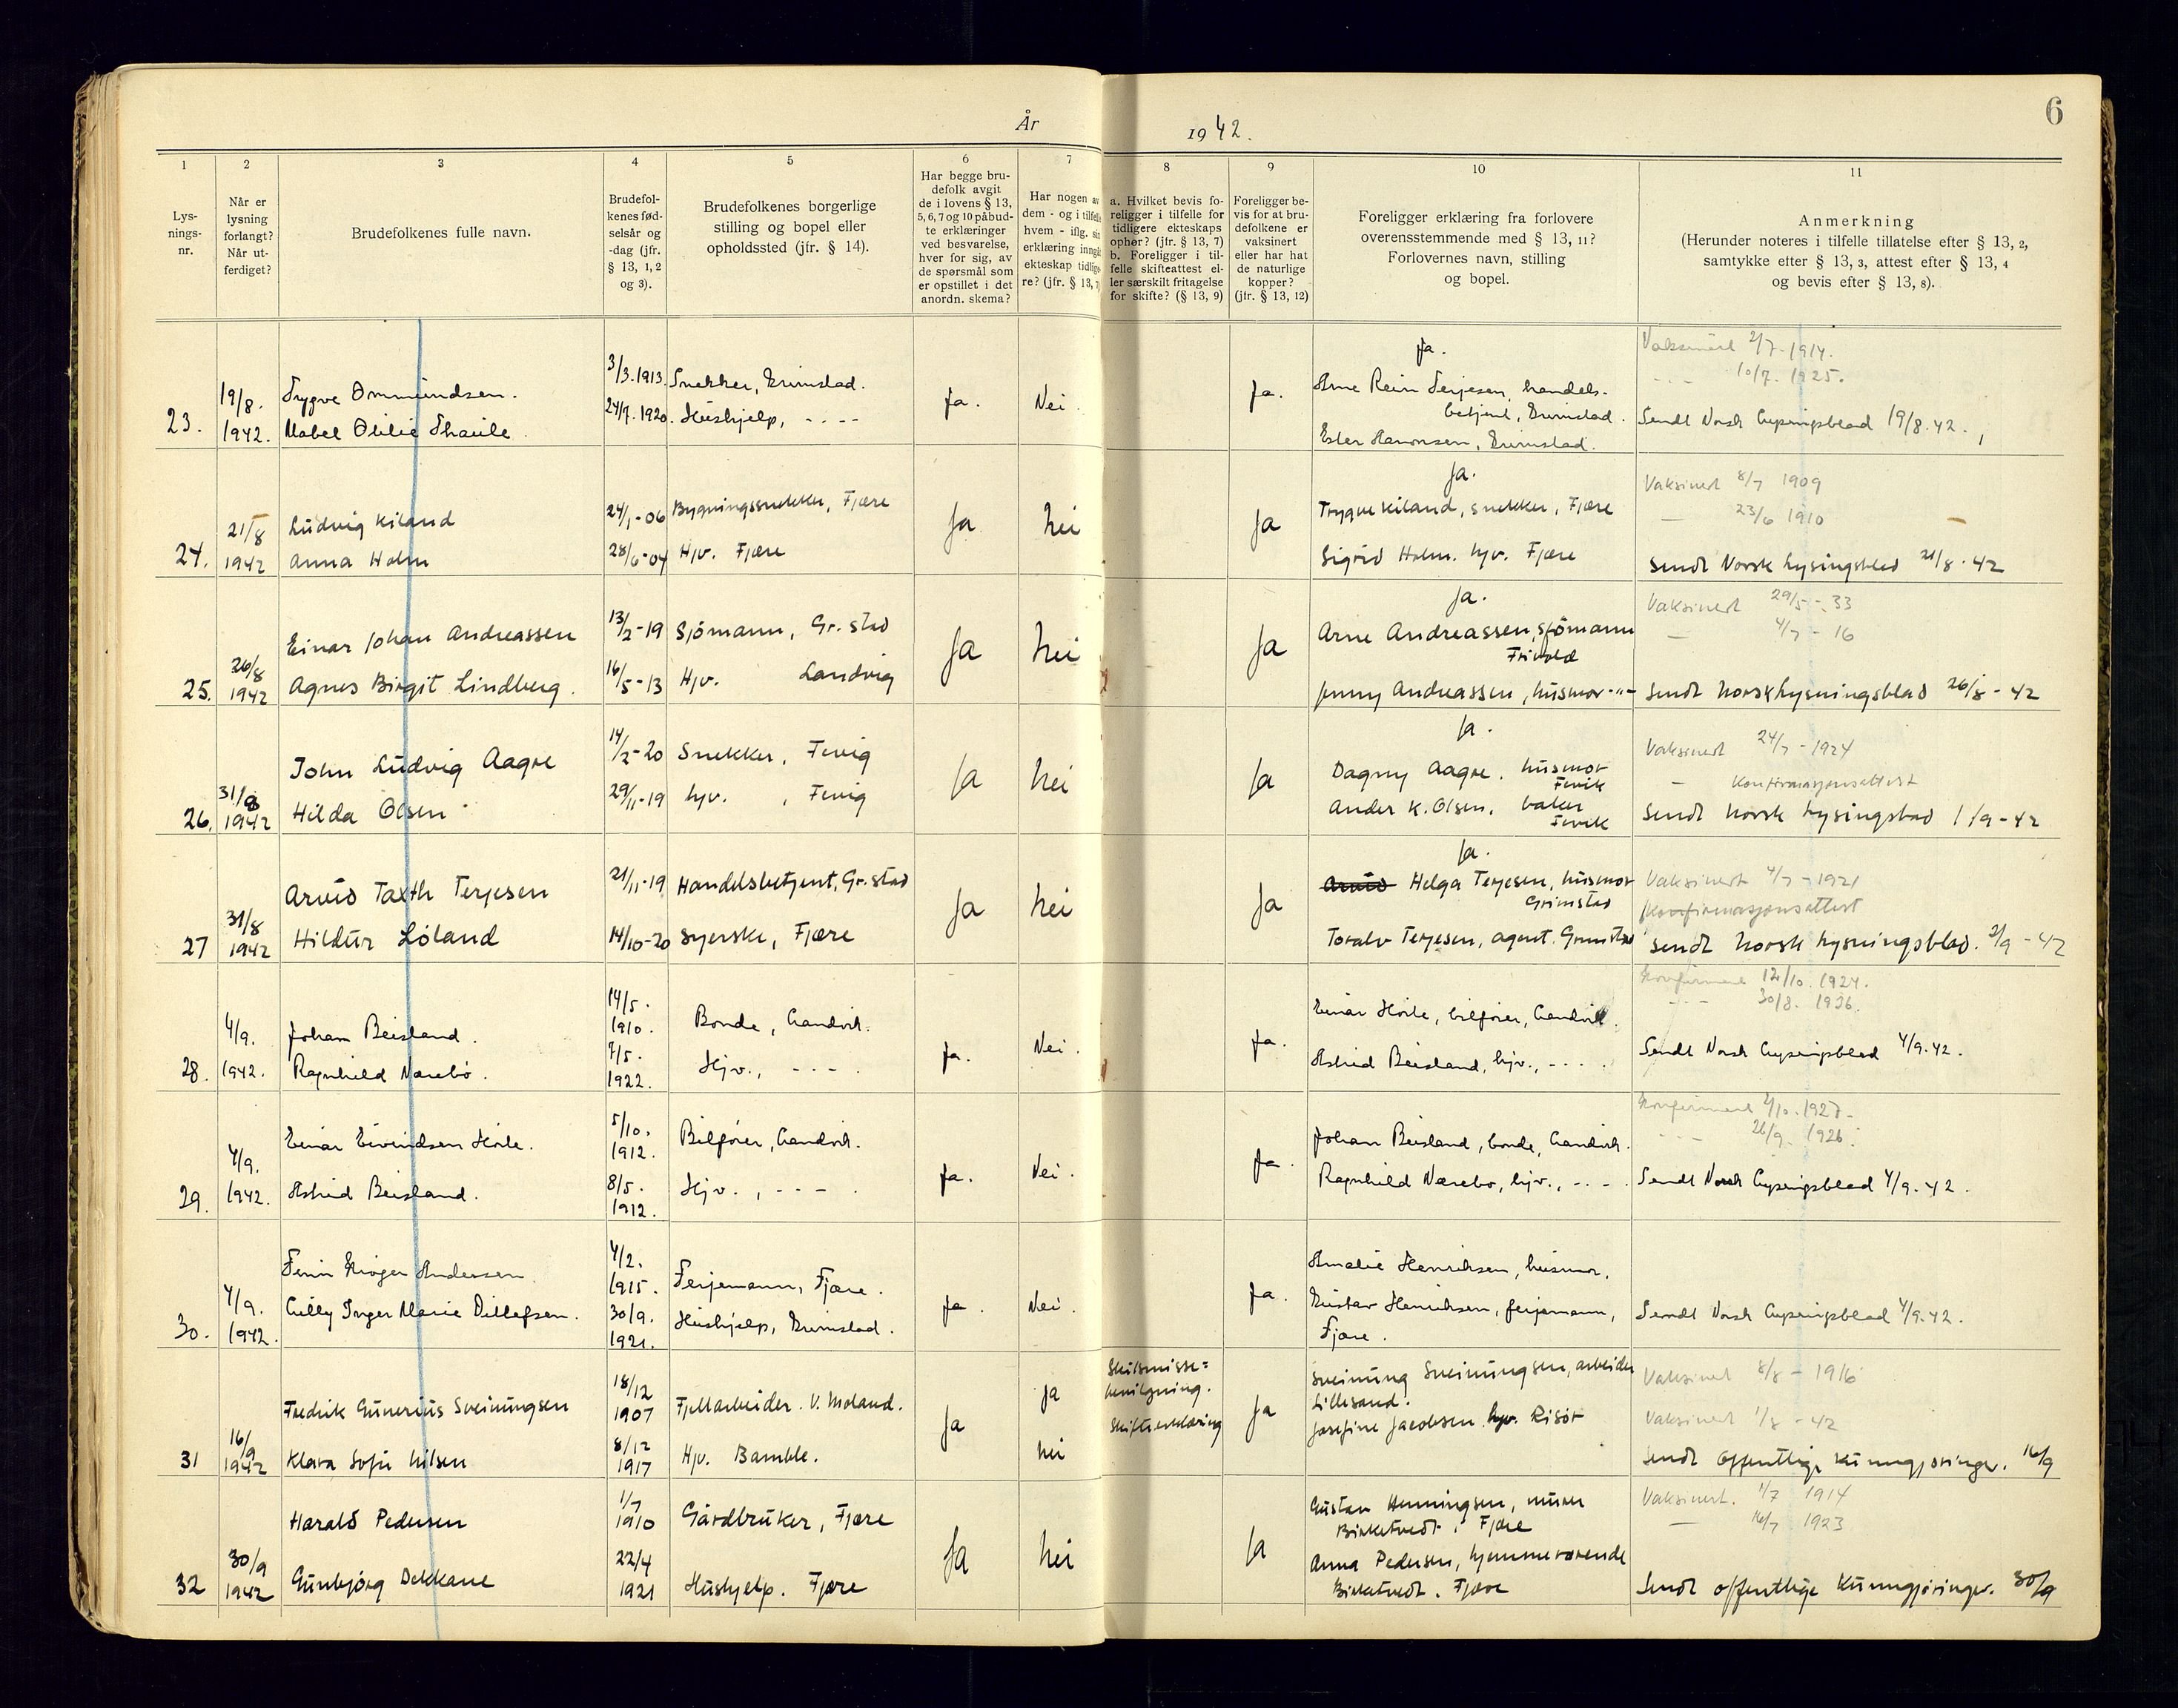 År 1942.
6
1
2
3
4
5
6
7
8
9
10
11
Lys-
nings-
nr.
Når er
lysning
forlangt?
Når ut-
ferdiget?
Brudefolkenes fulle navn.
Brudefol-
kenes fød-
selsår og
-dag (jfr.
§ 13, 1, 2
og 3).
Brudefolkenes borgerlige
stilling og bopel eller
opholdssted (jfr. § 14).
Har begge bru-
defolk avgit
de i lovens § 13,
5, 6, 7 og 10 påbud-
te erklæringer
ved besvarelse,
hver for sig, av
de spørsmål som
er opstillet i det
anordn. skema?
Har nogen av
dem - og i tilfelle
hvem - iflg. sin
erklæring inngått
ekteskap tidlige-
re? (jfr. § 13, 7)
a. Hvilket bevis fo-
religger i tilfelle for
tidligere ekteskaps
ophør? (jfr. § 13, 7)
b. Foreligger i til-
felle skifteattest el-
ler særskilt fritagelse
for skifte? (§ 13, 9)
Foreligger be-
vis for at bru-
defolkene er
vaksinert
eller har hat
de naturlige
kopper?
(jfr. § 13, 12)
Foreligger erklæring fra forlovere
overensstemmende med § 13, 11?
Forlovernes navn, stilling
og bopel.
Anmerkning
(Herunder noteres i tilfelle tillatelse efter § 13, 2,
samtykke efter § 13, 3, attest efter § 13, 4
og bevis efter § 13, 8).
23.
19/8.
1942.
Trygve Ommundsen.
Mabel Otilie Thaule
3/3.1913.
24/9.1920.
Snekker, Grimstad.
Hushjelp, - - - -
Ja.
Nei.
Ja.
Ja.
Arne Rein Terjesen, handels-
betjent, Grimstad.
Ester Aanonsen, Grimstad.
Vaksinert 2/7-1914.
- - - 10/7. 1925.
Sendt Norsk Lysingsblad 19/8.42.
24.
21/8
1942
Ludvig Kiland
Anna Holm
24/1-06
28/6-04
Bygningssnekker, Fjære
Hjv. Fjære
Ja
Nei
Ja
Ja.
Trygve Kiland, snekker, Fjære
Sigrid Holm. hjv. Fjære
Vaksinert 8/7 1909
— 23/6 1910
Sendt Norsk Lysingsblad 21/8.42
25.
26/8
1942
Einar Johan Andreassen
Agnes Birgit Lindberg.
13/2-19
16/5-13
Sjömann, Gr.stad
Hjv. Landvig
Ja
Nei
Ja
Ja.
Arne Andreassen, sjömann
Frivold
Jenny Andreassen, husmor -"-
Vaksinert 29/5-33
— 4/7-16
Sendt Norsk Lysningsblad 26/8-42
26.
31/8
1942
John Ludvig Aagre
Hilda Olsen
14/2-20
29/11-19
Snekker, Fevig
hjv. , Fevig
Ja
Nei
Ja
Ja.
Dagny Aagre. husmor
Fevik
Ander K. Olsen. baker
Fevik
Vaksinert 24/7-1924
— Konfirmasjonsattest
Sendt Norsk Lysingsblad 1/9-42
27
31/8
1942
Arvid Taxth Terjesen
Hildur Löland
21/11-19
14/10-20
Handelsbetjent, Gr.stad
Syerske, Fjære
Ja
Nei
Ja
Ja.
Arvid Helga Terjesen, husmor
Grimstad
Toralv Terjesen, agent. Grimstad
Vaksinert 4/7-1921
Konfirmasjonsattest
Sendt Norsk Lysningsblad. 2/9-42
28.
4/9.
1942.
Johan Beisland.
Ragnhild Nærebø.
14/5.
1910.
7/5.
1922.
Bonde, Landvik.
Hjv., - - - .
Ja.
Nei.
Ja.
Einar Hörte, bilförer, Landvik.
Astrid Beisland, hjv., - - - .
Konfirmert 12/10. 1924.
- - - 30/8. 1936.
Sendt Norsk Lysingsblad 4/9.42.
29.
4/9.
1942.
Einar Eivindsen Hörte.
Astrid Beisland.
5/10.
1912.
8/5.
1912.
Bilförer, Landvik.
Hjv., - - - .
Ja.
Nei.
Ja.
Johan Beisland, bonde, Landvik.
Ragnhild Nærebø, hjv., - - - .
Konfirmert 2/10.1927.
- - - 26/9. 1926.
Sendt Norsk Lysingsblad 4/9.42.
30.
4/9.
1942.
Andersen
Cilly Inger Marie Ditlefsen.
4/2.
1915.
30/9.
1921.
Ferjemann, Fjære.
Hushjelp, Grimstad.
Ja.
Nei.
Ja.
Amalie Henriksen, husmor,
Gustav Henriksen, ferjemann,
Fjære.
Sendt Norsk Lysingsblad 4/9.42.
31
16/9
1942
Fredrik Gunerius Sveinungsen
Klara Sofie Nilsen
18/12
1907
8/12
1917
Fjellarbeider. V. Moland.
Hjv. Bamble.
Ja
Ja
Nei
Skilsmisse=
bevilgning.
Skifteerklæring
Ja
Sveinung Sveinungsen, arbeider
Lillesand.
Josefine Jacobsen. hjv. Risör
Vaksinert 8/8-1916
Vaksinert 1/8-42
Sendt offentlige kunngjöringer. 16/9
32
30/9
1942
Harald Pedersen
Gunbjörg Dekkane
1/7
1910
22/4
1921
Gårdbruker, Fjære
Hushjelp. Fjære
Ja
Nei
Ja
Gustav Henningsen, murer
Birketvedt, Fjære
Anna Pedersen, hjemmeværende
Birketvedt. Fjære
Vaksinert. 1/7 1914
— 16/7 1923
Sendt offentlige Kunngjöringer. 30/9